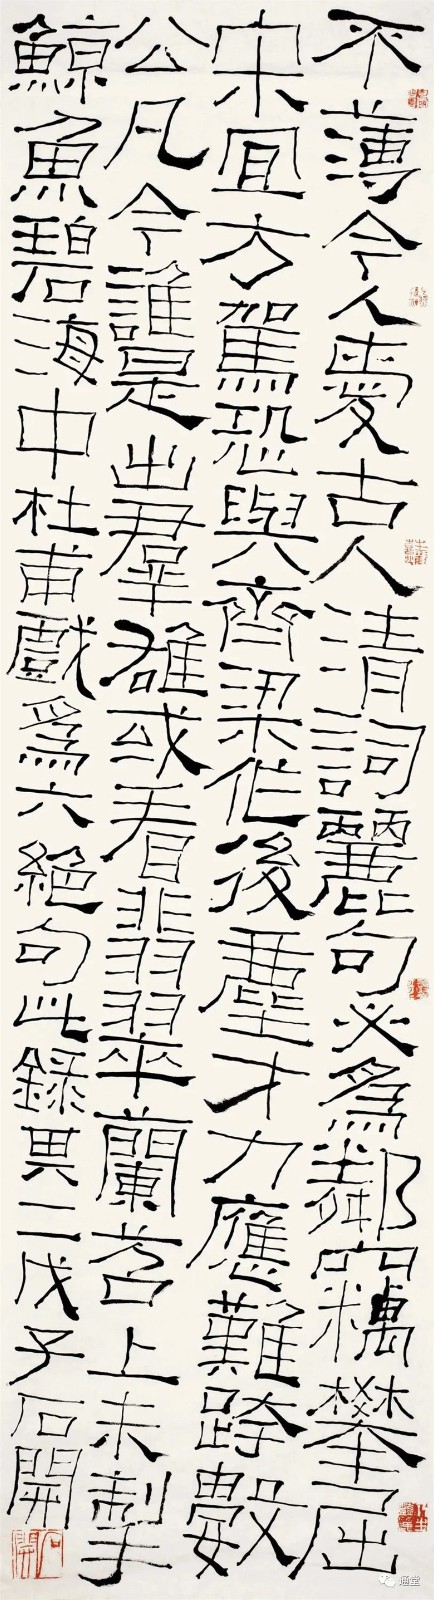 不薄今人愛古人清詞麗句必爲鄰竊攀屈
宋宜方駕恐與齊梁作後塵才力應難跨數
公凡今誰是出羣雄或看翡翠蘭苕上未掣
鯨魚碧海中杜甫戲爲六絕句此錄其二戊子石開
石開
通堂